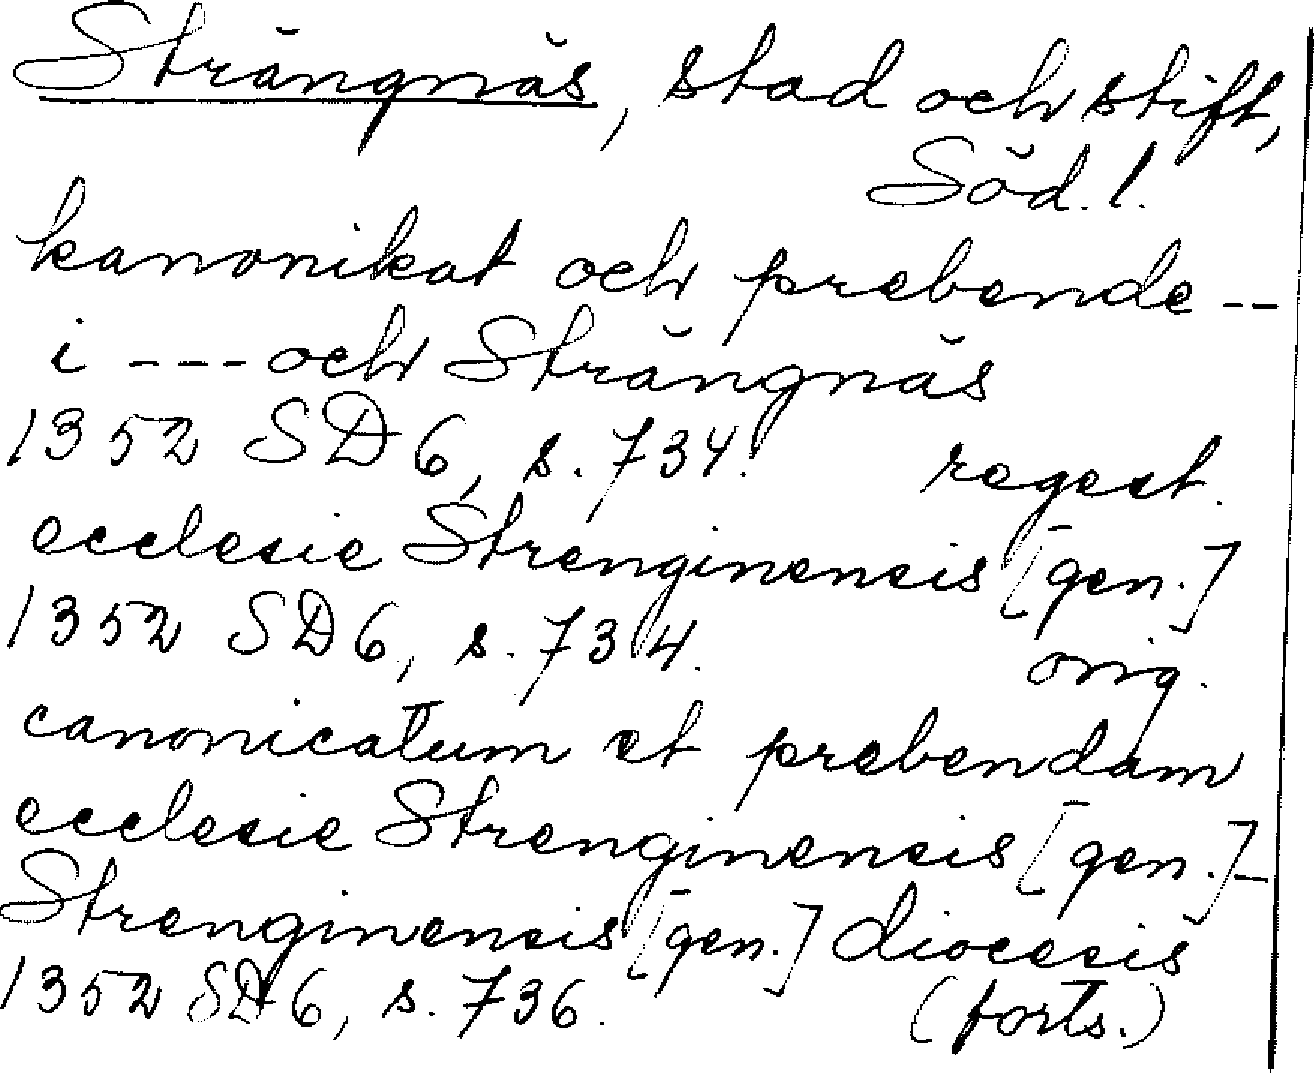 Strängnäs, stad och stift,
Söd. l.
kanonikat och prebende --
i --- och Strängnäs
1352 SD 6, s. 734. regest.
ecclesie Strenginensis [gen.]
1352 SD 6, s. 734. orig.
canonicatum et prebendam
ecclesie Strenginensis [gen.] -
Strenginensis [gen.] diocesis
1352 SD 6, s. 736. (forts.)